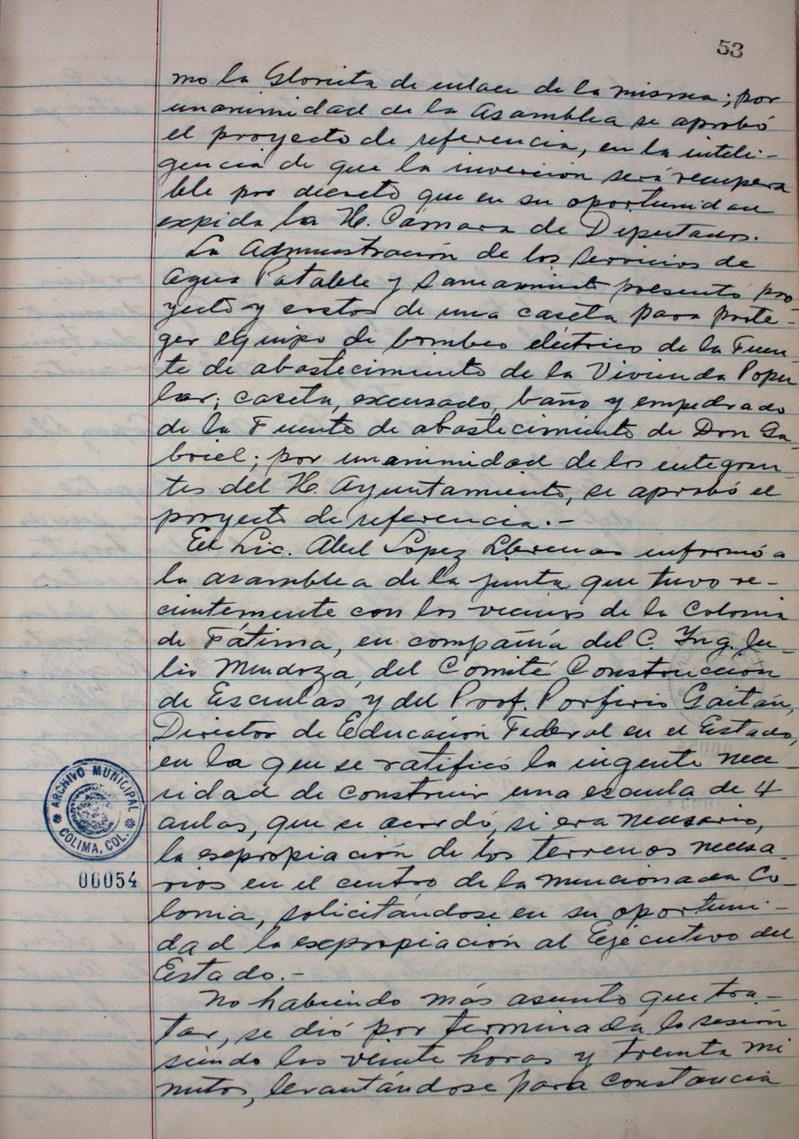 53
mo la Glorieta de enlace de la misma; por
unanimidad de la Asamblea se aprobó
el proyecto de referencia, en la inteli-
gencia de que la inversión será recupera
ble por decreto que en su oportunidad
expida la H. Cámara de Diputados.
La Administración de los Servicios de
Agua Potable y Saneamiento presentó pro-
yecto y costos de una caseta para prote-
ger equipo de bombeo eléctrico de la Fuen-
te de abastecimiento de la Vivienda Popu
lar; caseta, excusado, baño y empedrado
de la Fuente de abastecimiento de Don Ga-
briel; por unanimidad de los integran-
tes del H. Ayuntamiento, se aprobó el
proyecto de referencia.-
El Lic. Abel López Llerenas informó a
la asamblea de la junta que tuvo re-
cientemente con los vecinos de la Colonia
de Fátima, en compañía del C. Ing. Ju-
lio Mendoza, del Comité Construcción
de Escuelas y del Prof. Porfirio Gaitán,
Director de Educación Federal en el Estado,
en la que se ratificó la ingente nece-
sidad de construir una escuela de 4
aulas, que se acordó, si era necesario,
la expropiación de los terrenos necesa-
rios en el centro de la mencionada Co-
lonia, solicitándose en su oportuni-
dad la expropiación al Ejecutivo del
Estado.-
No habiendo más asunto que tra-
tar, se dió por terminada la sesión
siendo las veinte horas y treinta mi
nutos, levantándose para constancia
ARCHIVO MUNICIPAL
COLIMA, COL.
00054